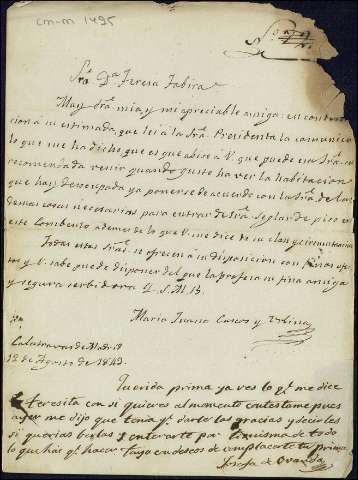 cm-m 1495
Sra. Da. Teresa Tabira
Muy Sra. mia, y mi apreciable amiga: en contesta
cion á su estimada, que leí á la Sra. Presidenta la comunico
lo que me ha dicho, que es que abise á V. que puede esa Sra. re
comendada venir quando guste ha ver la habitacion
que hay desocupada y a ponerse de acuerdo con la Sra. de las
demas cosas necesarias para entrar de Sra. Seglar de piso en
este Combento ademas de lo que V. me dice de su clase y circunstancias
Todas estas Sras. se ofrecen á su disposicion con finos afec
tos y V. sabe puede disponer del que la profesa su fina amiga
y segura serbidora Q. S. M. B.
Maria Juana Cascos y Urbina
Calatravas de Madrid
12 de Agosto de 1843.
Querida prima ya ves lo qe. me dice
Teresita con si quieres al momento contestame pues
ayer me dijo que tenia qe. darte las gracias y decirles
si querias berlas y enterarte por de todo
lo que hai qe. hacer tuya en deseos de complacerte tu prima
Josefa de Ovando